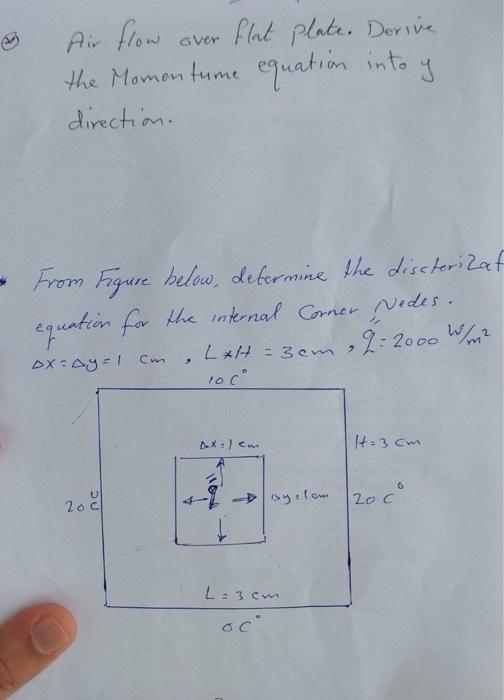 Air flow over flat plate. Derive
the Momentume equation into y
direction.
From Figure below, determine the discterizat
equation for the internal Corner Nedes.
Δx=Δy=1 cm , L*H = 3cm , q̈ = 2000 W/m²
10 C°
Δx=1 cm
H=3 cm
20 C°
q̈
Δy=1cm
20 C°
L=3 cm
0 C°